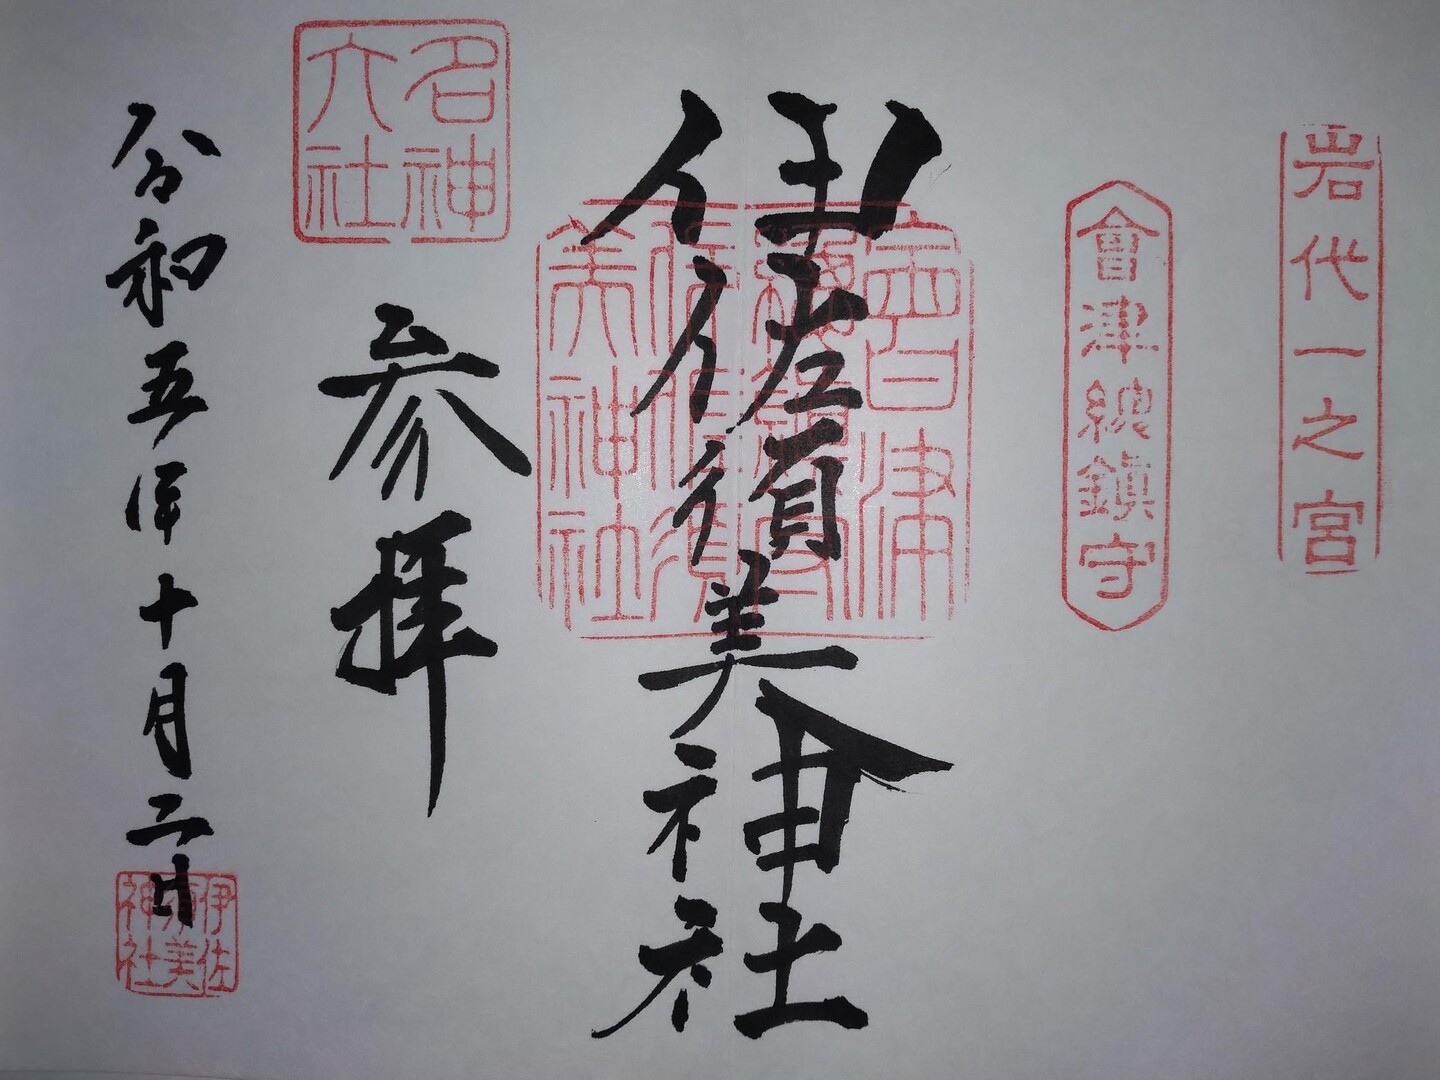 岩代一之宮
會津總鎮守
伊佐須美神社
會津
總鎮守
伊佐須
美神社
名神
大社
参拝
令和五年十月二日
伊佐
須美
神社